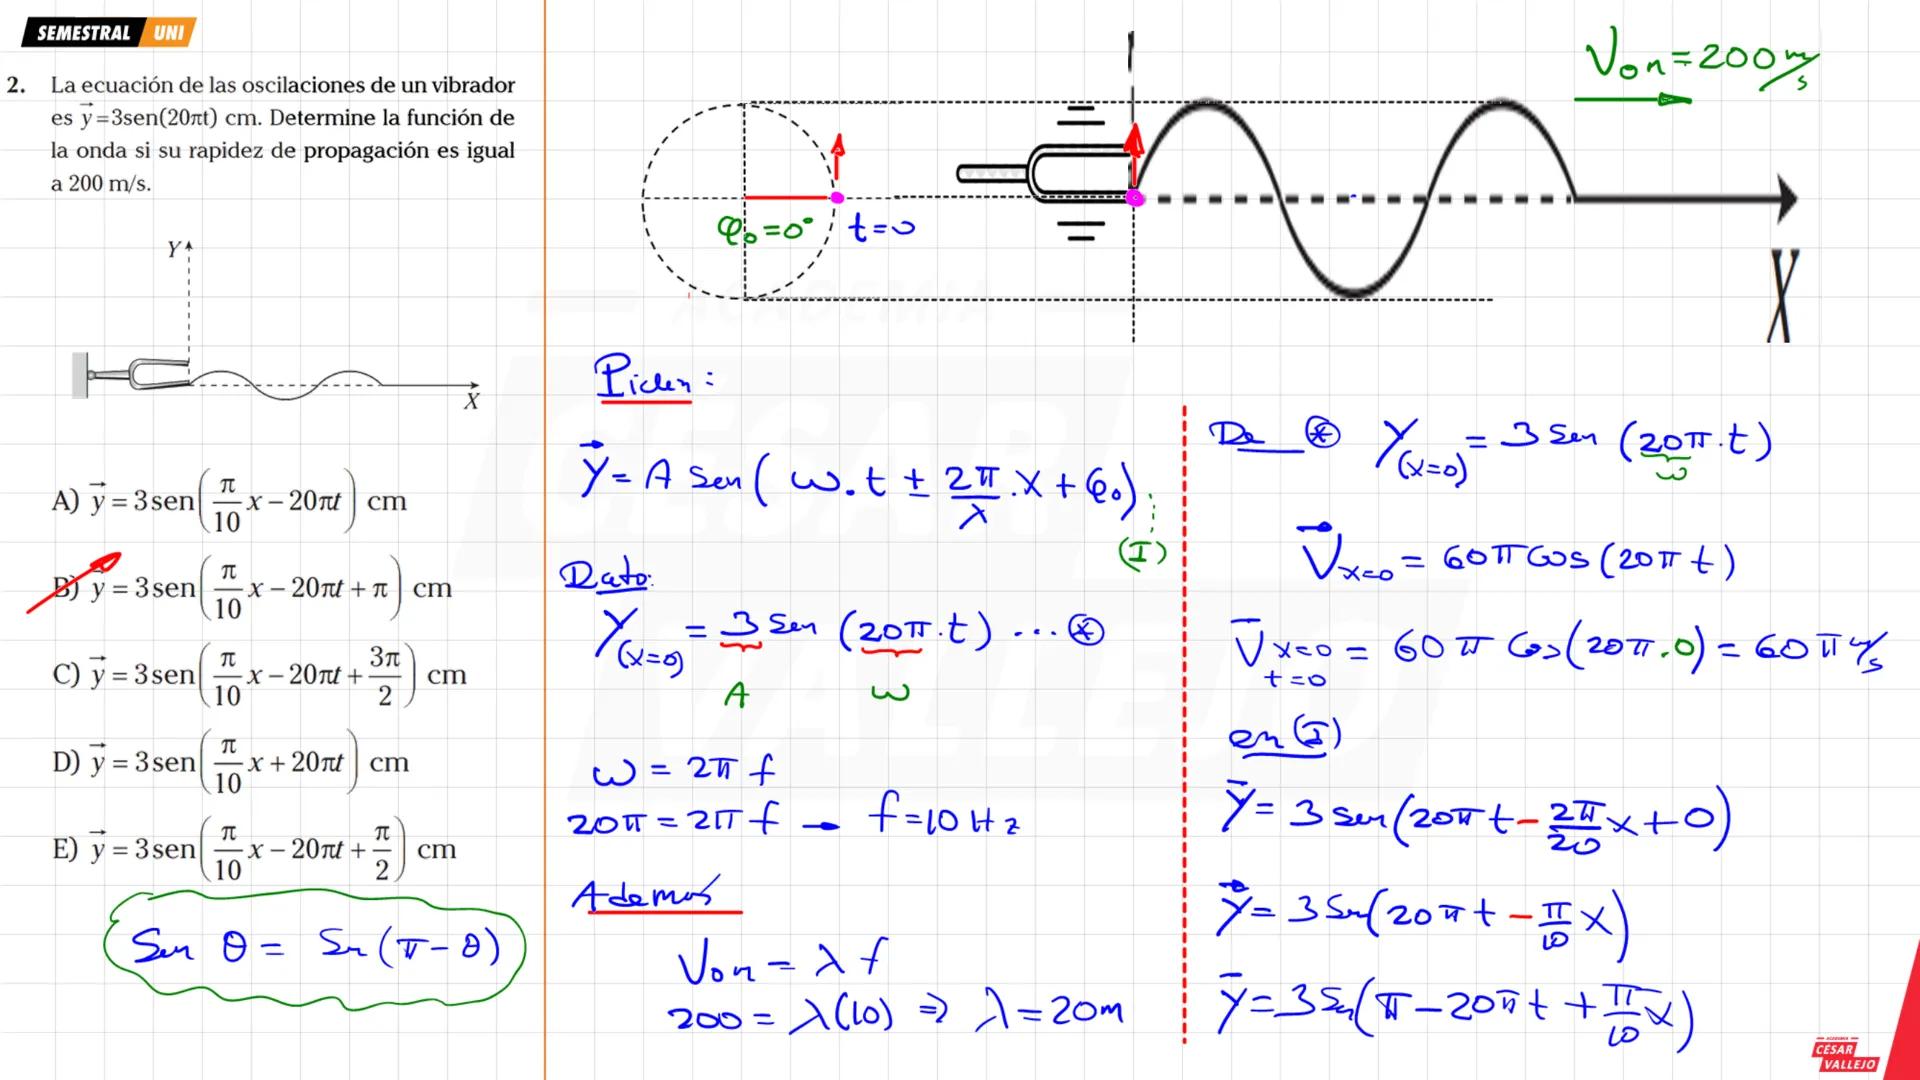 SEMESTRAL UNI
2. La ecuación de las oscilaciones de un vibrador
es y⃗=3sen(20πt) cm. Determine la función de
la onda si su rapidez de propagación es igual
a 200 m/s.
Y
X
A) y⃗ = 3sen(π/10 x − 20πt) cm
B) y⃗ = 3sen(π/10 x − 20πt + π) cm
C) y⃗ = 3sen(π/10 x − 20πt + 3π/2) cm
D) y⃗ = 3sen(π/10 x + 20πt) cm
E) y⃗ = 3sen(π/10 x − 20πt + π/2) cm
Sen θ = Sen (π − θ)
φ₀ = 0° t=0
Von = 200 m/s
X
Piden:
Y⃗ = A Sen( ω.t ± 2π/λ .x + φ₀)
(I)
Dato:
Y(x=0) = 3 Sen (20π.t) ... ⊛
A ω
ω = 2π f
20π = 2π f → f = 10 Hz
Además
Von = λ f
200 = λ(10) ⇒ λ = 20m
De ⊛ Y(x=0) = 3 Sen (20π.t)
ω
V⃗x=0 = 60π Cos (20π t)
V⃗x=0 t=0 = 60 π Cos(20π.0) = 60 π m/s
en (I)
Y⃗ = 3 Sen(20π t − 2π/20 x + 0)
Y⃗ = 3 Sen(20π t − π/10 x)
Y⃗ = 3 Sen(π − 20π t + π/10 x)
ACADEMIA
CESAR
VALLEJO
ACADEMIA
CESAR
VALLEJO